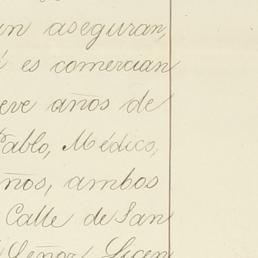 un aseguran,
es comercian
eve años de
Pablo, Médico,
ños, ambos
Calle de San
Señor Licen